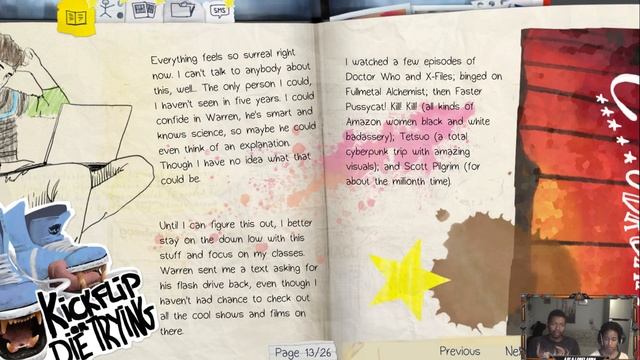 SMS
Everything feels so surreal right
now. I can't talk to anybody about
this, well... The only person I could,
I haven't seen in five years. I could
confide in Warren, he's smart and
knows science, so maybe he could
even think of an explanation.
Though I have no idea what that
could be.
Until I can figure this out, I better
stay on the down low with this
stuff and focus on my classes.
Warren sent me a text asking for
his flash drive back, even though I
haven't had chance to check out
all the cool shows and films on
there.
KICKFLIP
OR
DIE TRYING
I watched a few episodes of
Doctor Who and X-Files; binged on
Fullmetal Alchemist; then Faster
Pussycat! Kill! Kill! (all kinds of
Amazon women black and white
badassery); Tetsuo (a total
cyberpunk trip with amazing
visuals); and Scott Pilgrim (for
about the millionth time).
Page 13/26
Previous